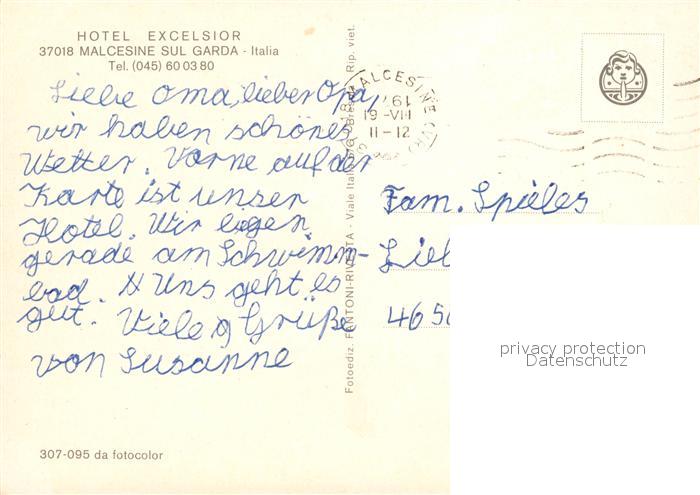 HOTEL EXCELSIOR
37018 MALCESINE SUL GARDA - Italia
Tel. (045) 60 03 80
Liebe Oma, lieber Opa,
wir haben schönes
Wetter. Vorne auf der
Karte ist unser
Hotel. Wir liegen
gerade am Schwimm-
bad. Uns geht es
gut. Viele Grüße
von Susanne
307-095 da fotocolor
Fotoediz. FANTONI-RIVELTA - Viale Italia
Rip. viet.
MALCESINE
19-VIII
11-12
Fam. Spieles
Liel
465
privacy protection
Datenschutz